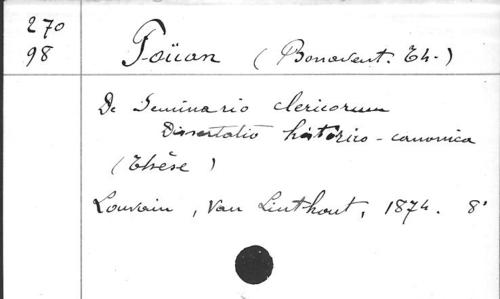 270
98
Foüan (Bonavent. Th.)
De Seminario clericorum
Dissertatio historico-canonica
(Thèse)
Louvain, Van Linthout, 1874. 8°